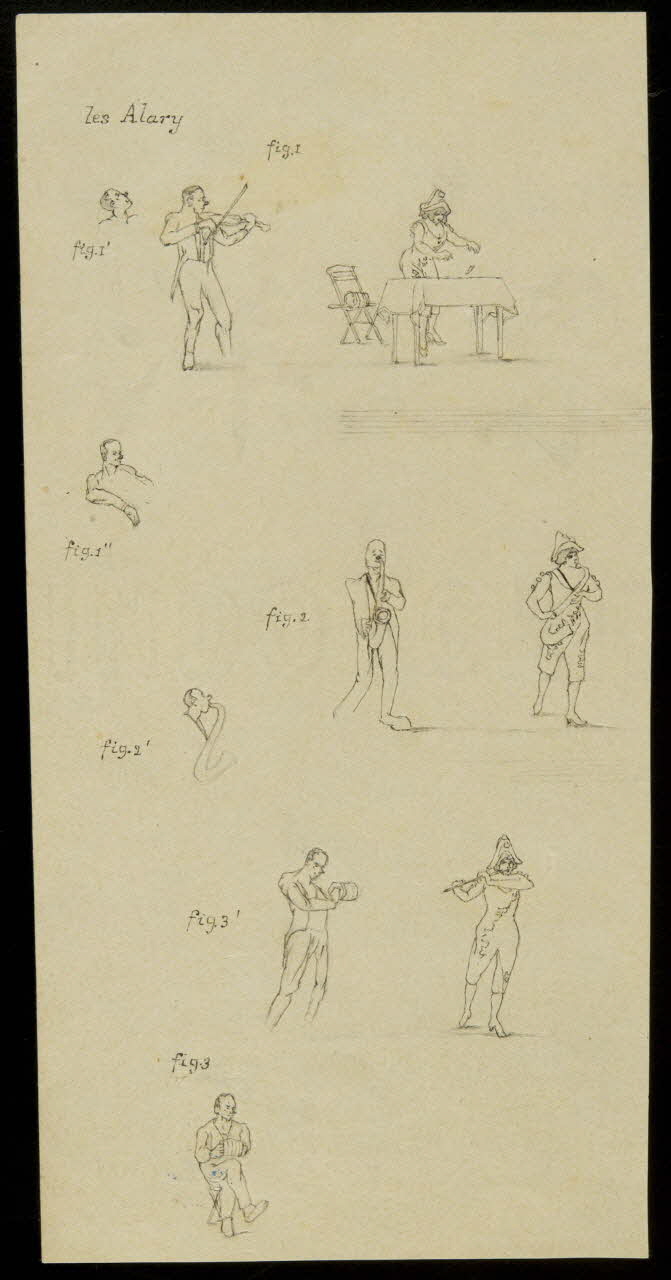 les Alary
fig.1
fig.1'
fig.1"
fig.2
fig.2'
fig.3'
fig.3